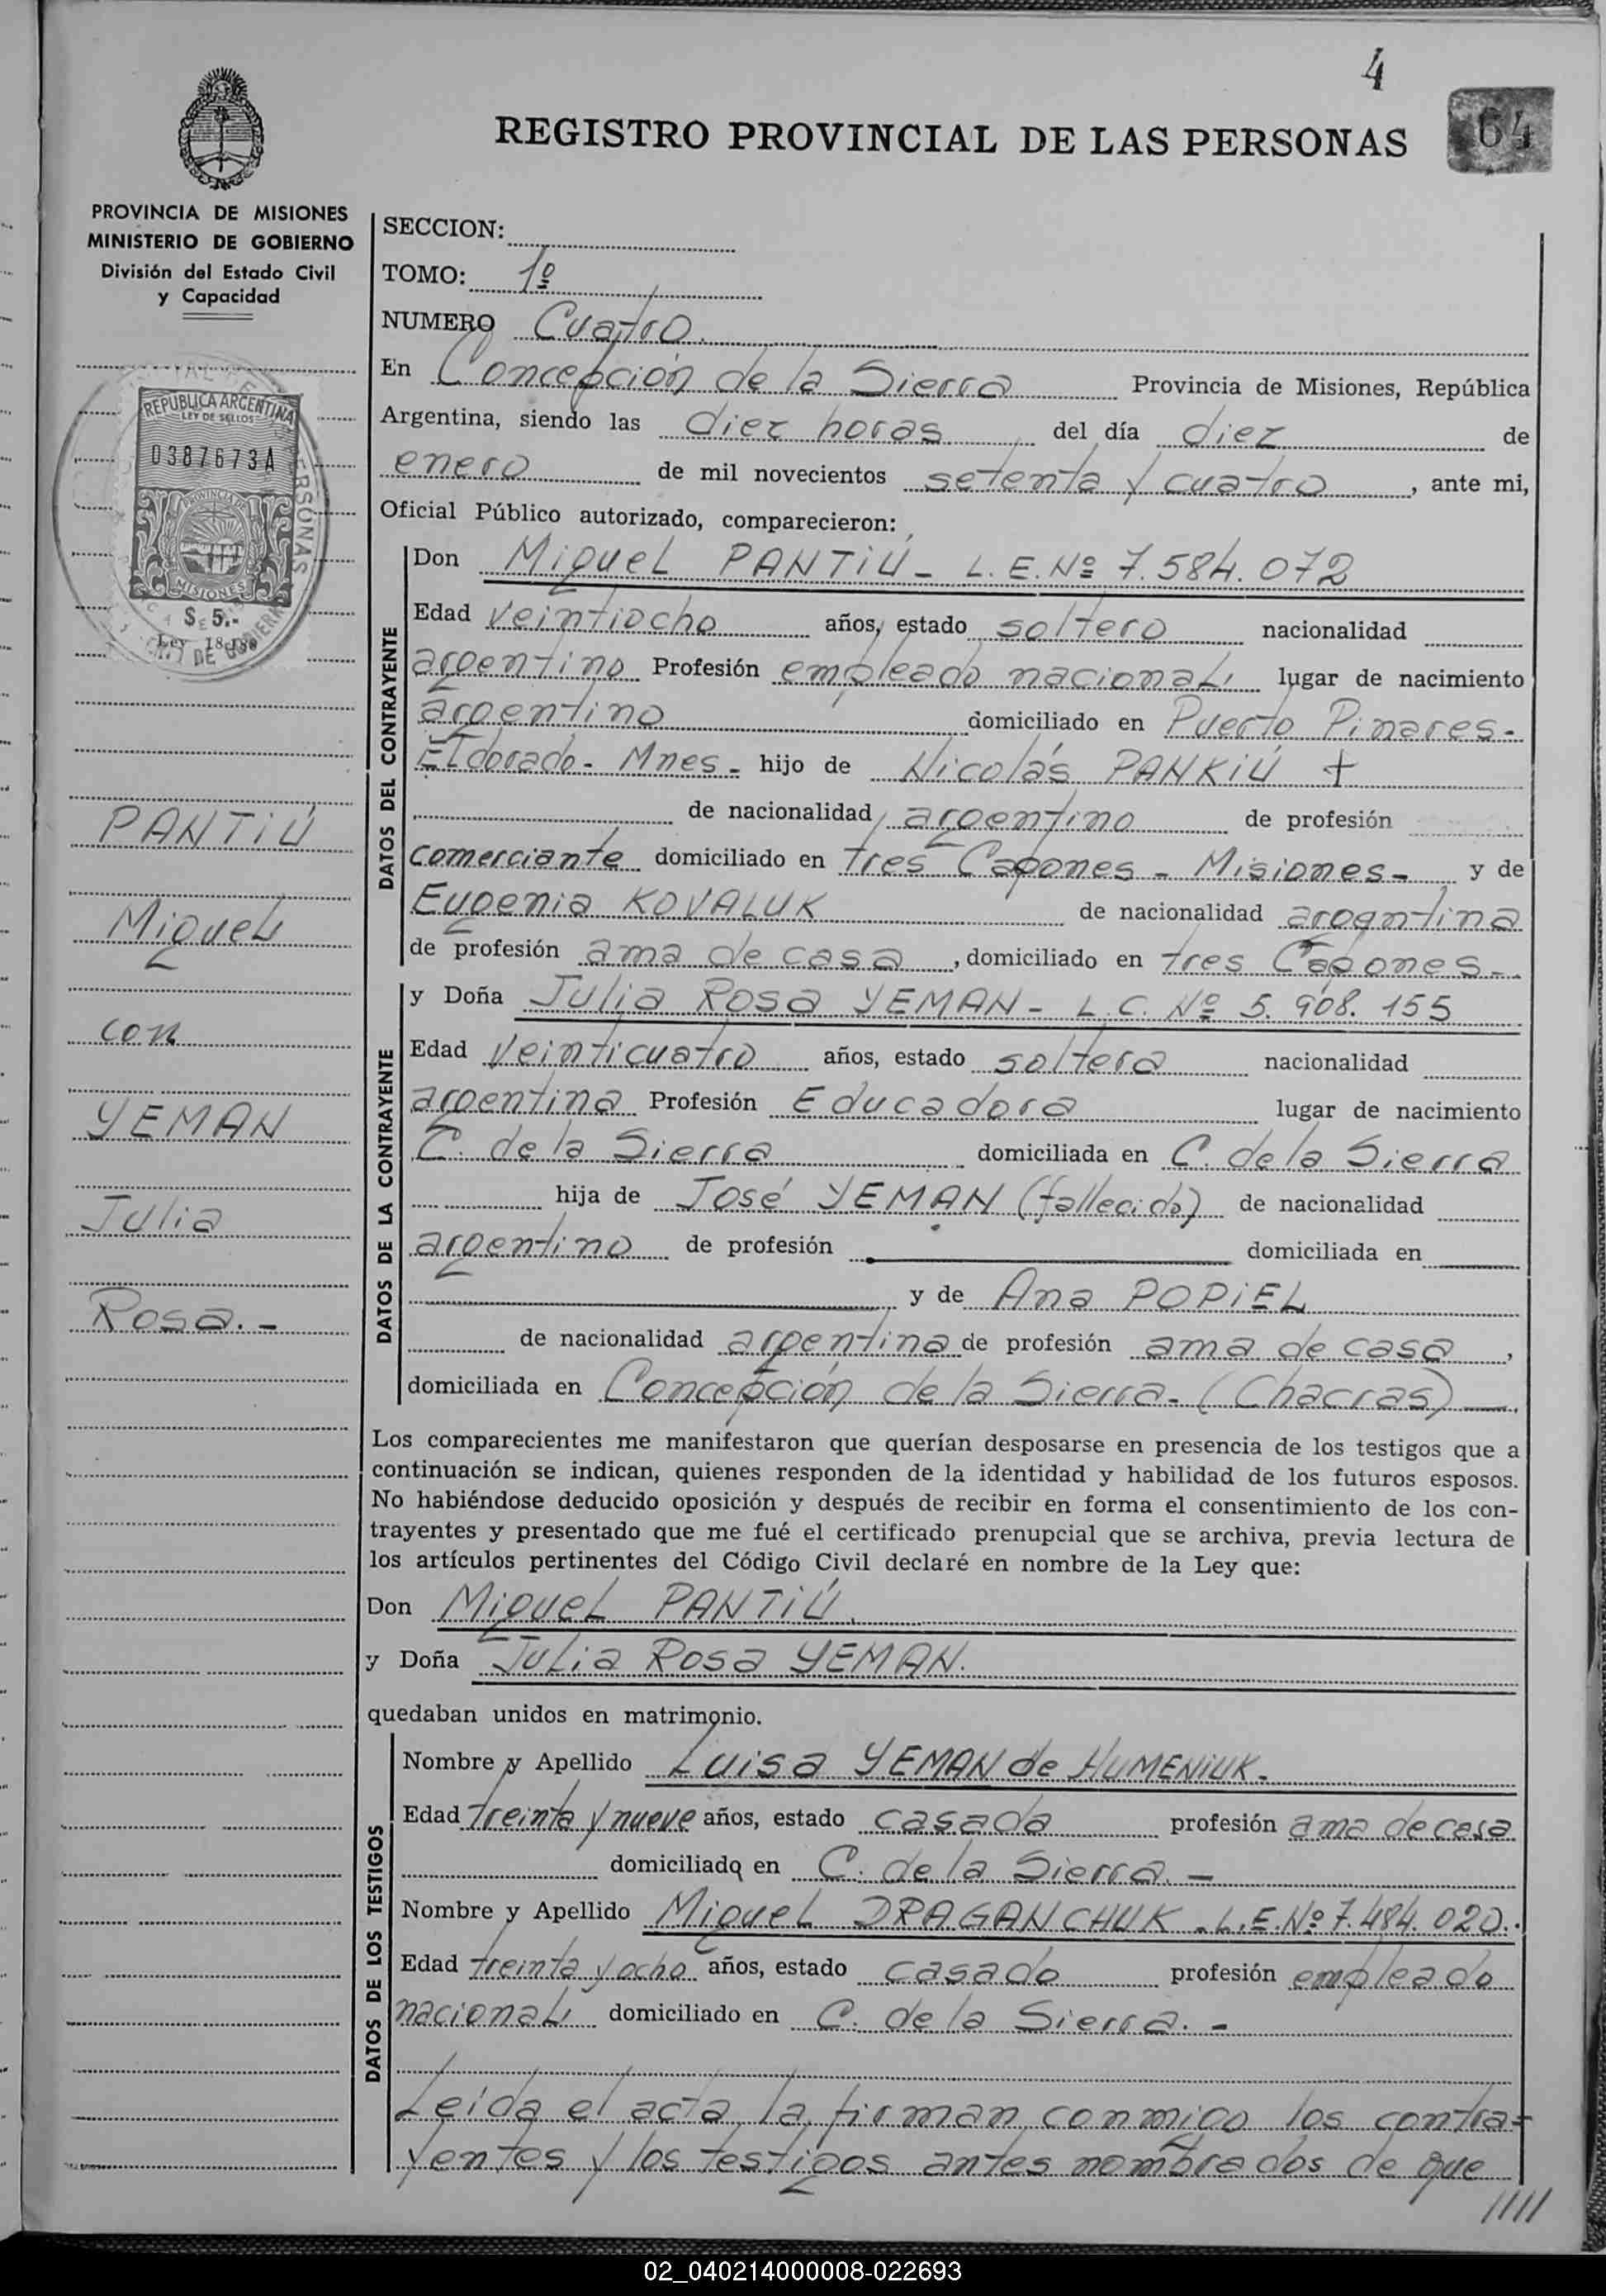 4
64
REGISTRO PROVINCIAL DE LAS PERSONAS
PROVINCIA DE MISIONES
MINISTERIO DE GOBIERNO
División del Estado Civil
y Capacidad
REPUBLICA ARGENTINA
LEY DE SELLOS
0387673A
PROVINCIA DE
MISIONES
$ 5.-
PANTIÚ
Miguel
con
YEMAN
Julia
Rosa.-
SECCION:
TOMO: 1º
NUMERO Cuatro
En Concepción de la Sierra Provincia de Misiones, República
Argentina, siendo las diez horas del día diez de
enero de mil novecientos setenta y cuatro, ante mi,
Oficial Público autorizado, comparecieron:
DATOS DEL CONTRAYENTE
Don Miguel PANTIÚ - L.E. Nº 7.584.072
Edad veintiocho años, estado soltero nacionalidad
argentino Profesión empleado nacional, lugar de nacimiento
argentino domiciliado en Puerto Pinares-
Eldorado- Mnes- hijo de Nicolás PANKIÚ +
de nacionalidad argentino de profesión
comerciante domiciliado en Tres Capones - Misiones- y de
Eugenia KOVALUK de nacionalidad argentina
de profesión ama de casa, domiciliado en tres Capones-
DATOS DE LA CONTRAYENTE
y Doña Julia Rosa YEMAN - L.C. Nº 5.908.155
Edad Veinticuatro años, estado soltera nacionalidad
argentina Profesión Educadora lugar de nacimiento
C. de la Sierra domiciliada en C. de la Sierra
hija de José YEMAN (fallecido) de nacionalidad
argentino de profesión domiciliada en
y de Ana POPIEL
de nacionalidad argentina de profesión ama de casa,
domiciliada en Concepción de la Sierra- (Chacras)
Los comparecientes me manifestaron que querían desposarse en presencia de los testigos que a
continuación se indican, quienes responden de la identidad y habilidad de los futuros esposos.
No habiéndose deducido oposición y después de recibir en forma el consentimiento de los con-
trayentes y presentado que me fué el certificado prenupcial que se archiva, previa lectura de
los artículos pertinentes del Código Civil declaré en nombre de la Ley que:
Don Miguel PANTIÚ.
y Doña Julia Rosa YEMAN.
quedaban unidos en matrimonio.
DATOS DE LOS TESTIGOS
Nombre y Apellido Luisa YEMAN de HUMENIUK-
Edad treinta y nueve años, estado casada profesión ama de casa
domiciliada en C. de la Sierra. -
Nombre y Apellido Miguel DRAGANCHUK - L.E. Nº 7.484.020.
Edad treinta y ocho años, estado casado profesión empleado
nacional domiciliado en C. de la Sierra. -
Leída el acta, la firman conmigo los contra-
yentes y los testigos antes nombrados de que
/////
02_040214000008-022693